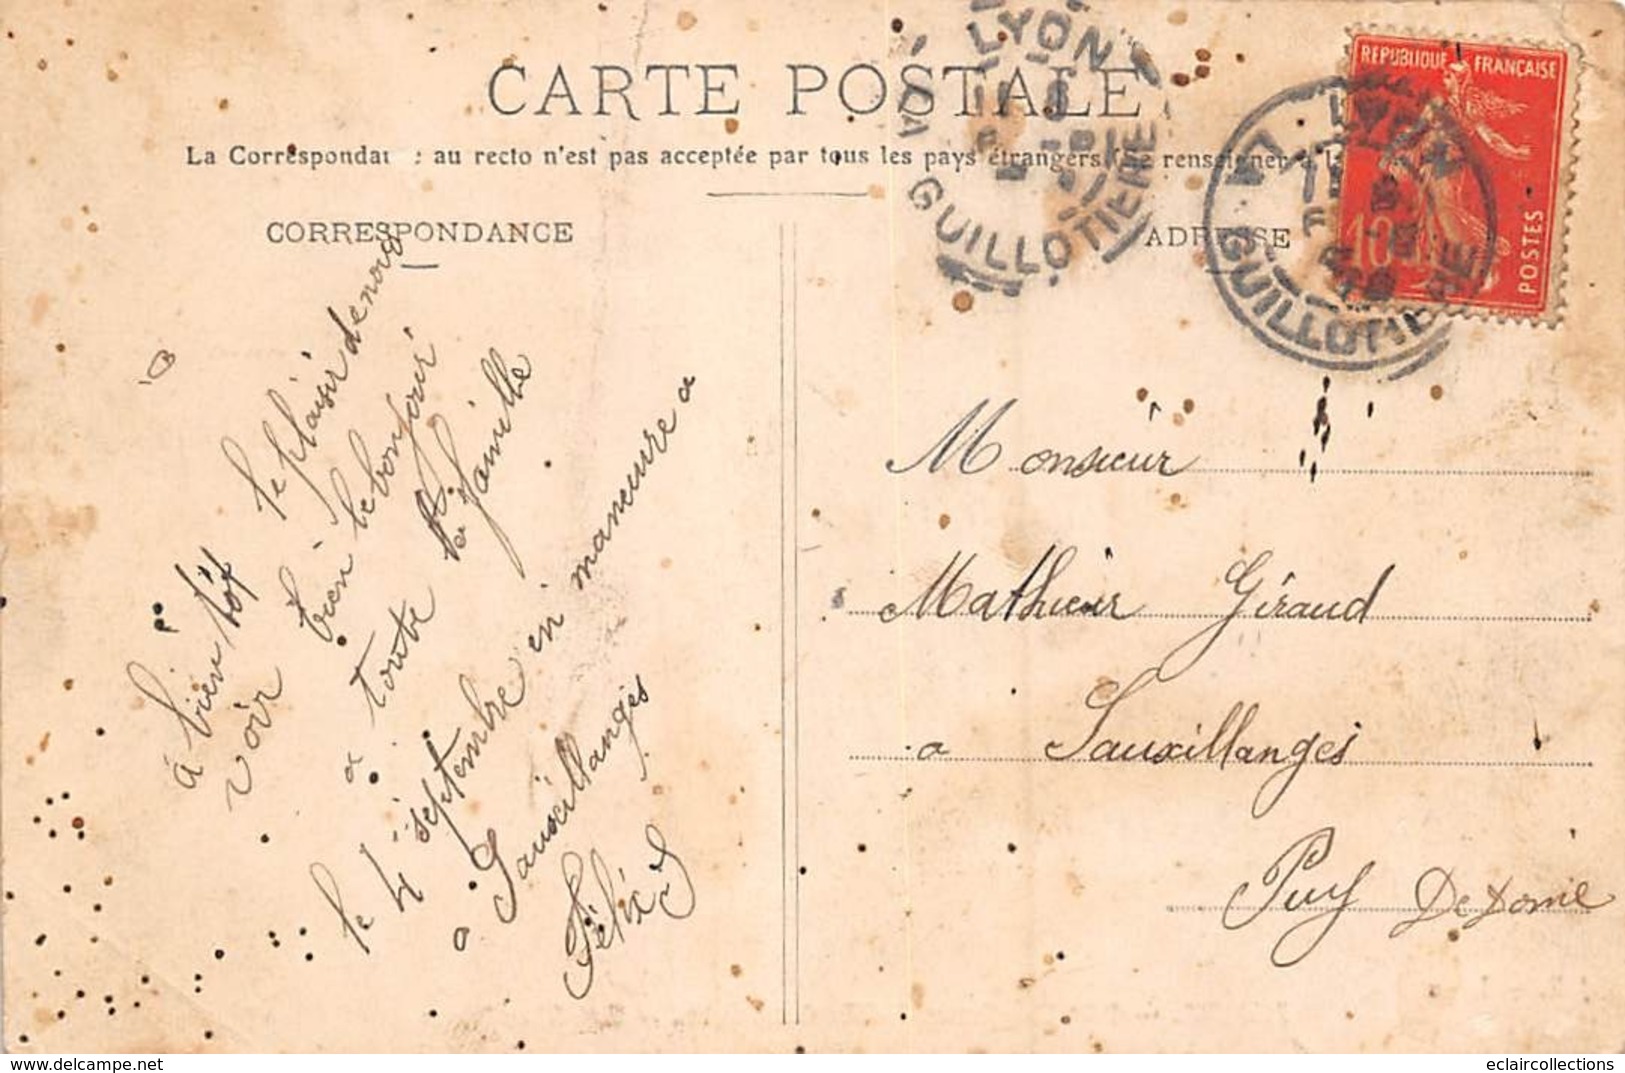 CARTE POSTALE
La Correspondance au recto n'est pas acceptée par tous les pays étrangers (Se renseigner à la
CORRESPONDANCE
ADRESSE
LYON
LA GUILLOTIERE
LYON
LA GUILLOTIERE
REPUBLIQUE FRANÇAISE
10
POSTES
à bien tôt le plaisir de nous
voir bien le bonjour
a toute la famille
le 4 septembre en maneuvre a
a Sauxillanges
Félix S
Monsieur
Mathieur Giraud
a Sauxillanges
Puy De Dome
delcampe.net
eclaircollections